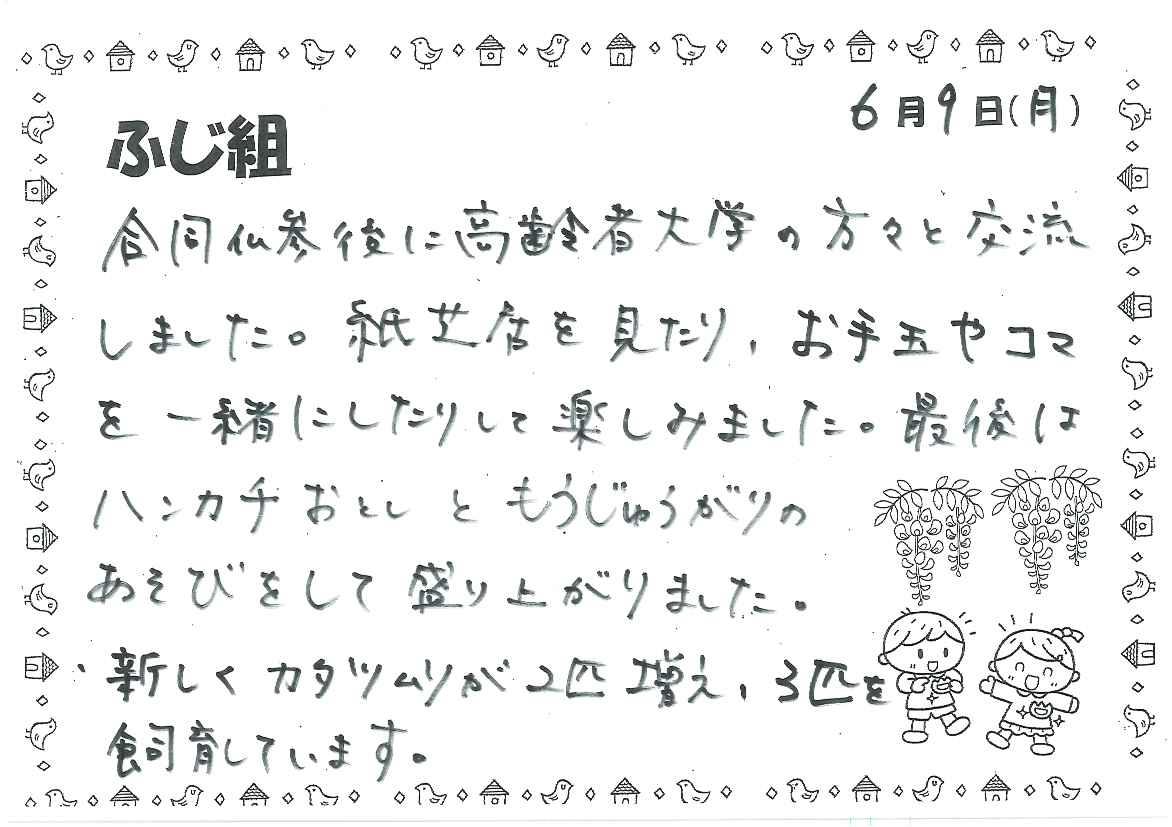 6月9日(月)
ふじ組
合同仏参後に高齢者大学の方々と交流
しました。紙芝居を見たり、お手玉やコマ
を一緒にしたりして楽しみました。最後は
ハンカチおとしともうじゅうがりの
あそびをして盛り上がりました。
、新しくカタツムリが2匹増え、3匹を
飼育しています。